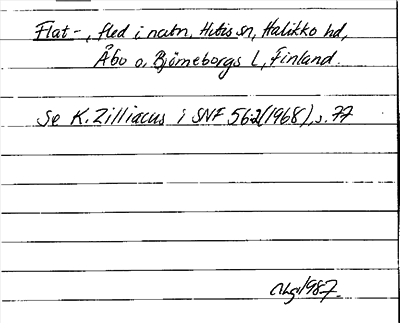 Flat-, fled i natn, Hitis sn, Halikko hd,
Åbo o. Björneborgs L, Finland.
Se K. Zilliacus i SNF 56:2(1968), s. 77
1987.